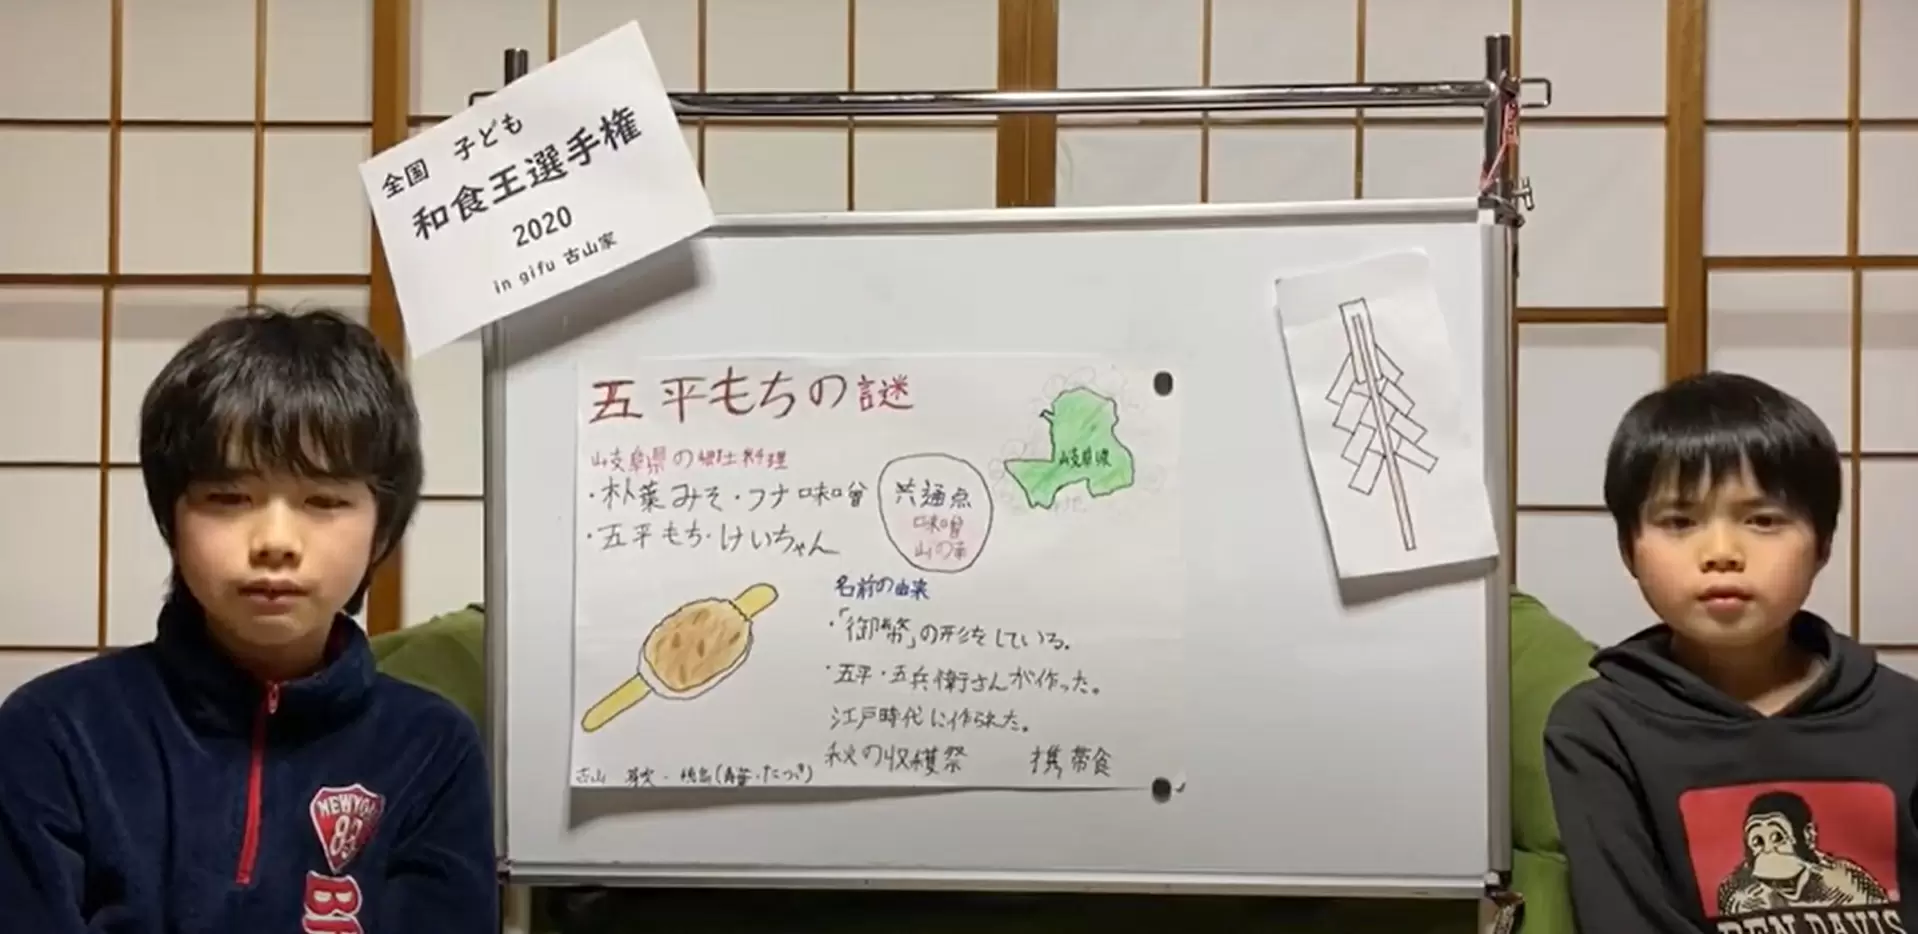 全国 子ども
和食王選手権
2020
in gifu 古山家
五平もちの謎
岐阜県の郷土料理
・朴葉みそ・フナ味噌
・五平もち・けいちゃん
共通点
味噌
山の幸
岐阜県
名前の由来
・「御幣」の形をしている。
・五平・五兵衛さんが作った。
江戸時代に作られた。
秋の収穫祭 携帯食
古山
NEWYORK
83
BEN DAVIS